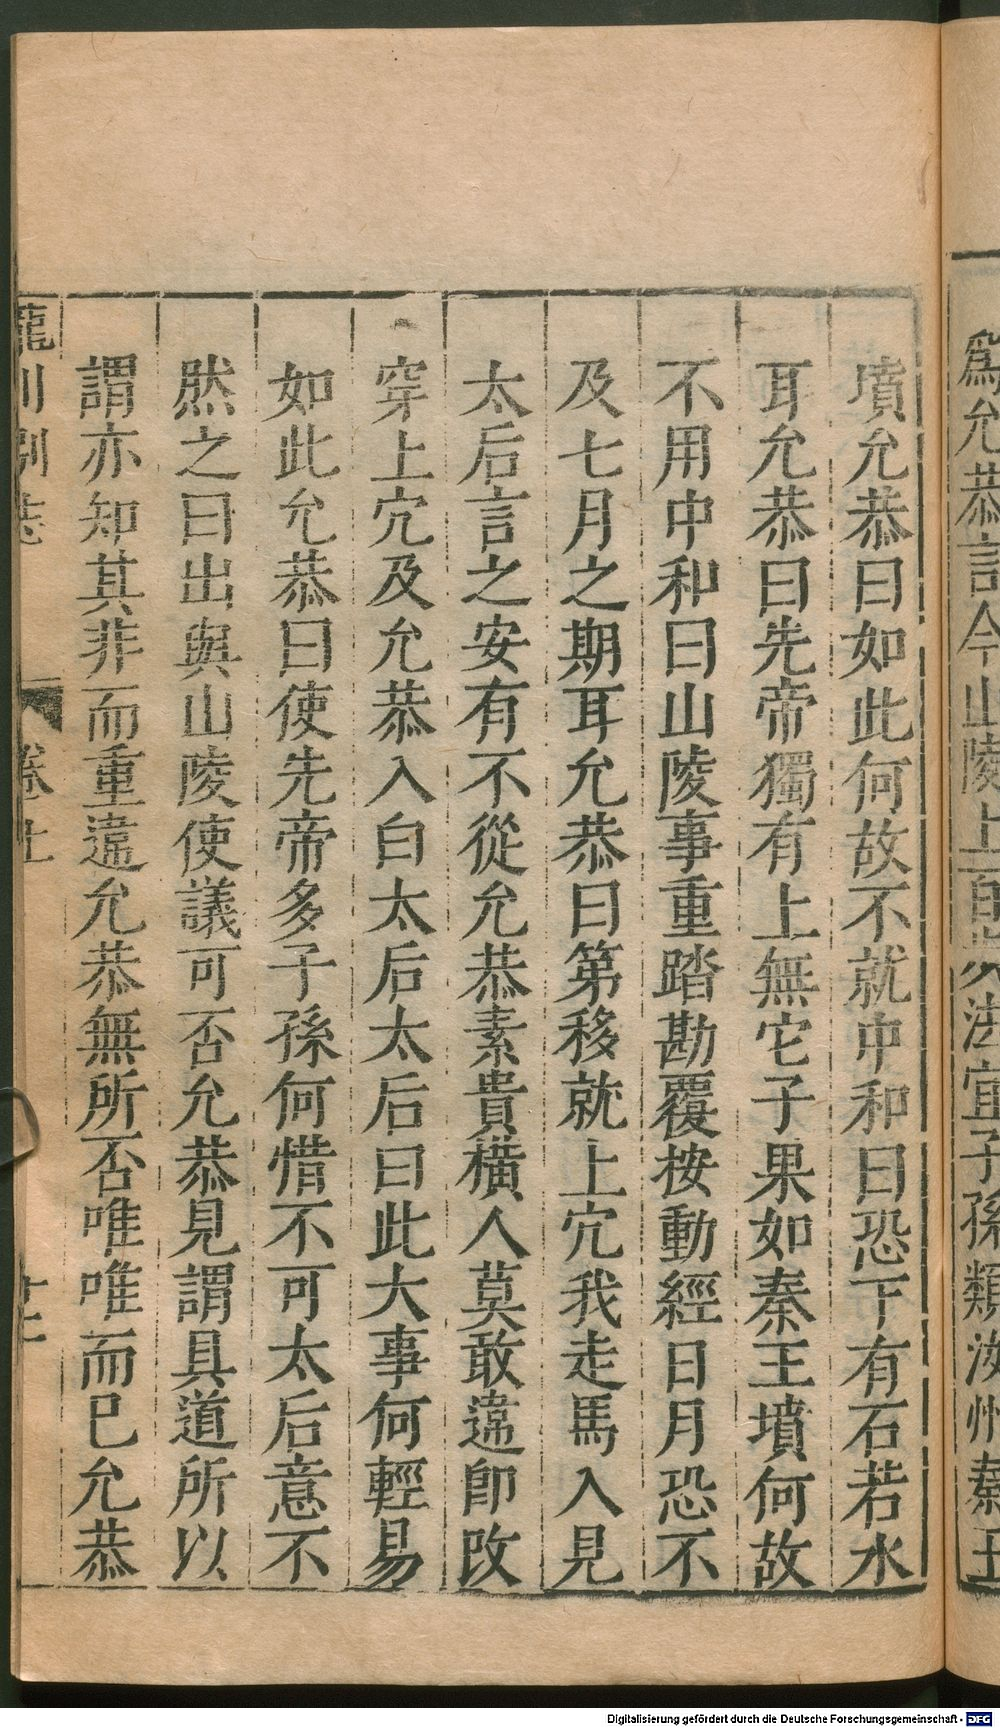 爲允恭言今山陵上百步法宜子孫類汝州秦王
墳允恭曰如此何故不就中和曰恐下有石若水
耳允恭曰先帝獨有上無它子果如秦王墳何故
不用中和曰山陵事重踏勘覆按動經日月恐不
及七月之期耳允恭曰第移就上穴我走馬入見
太后言之安有不從允恭素貴橫人莫敢違卽改
穿上穴及允恭入白太后太后曰此大事何輕易
如此允恭曰使先帝多子孫何惜不可太后意不
然之曰出與山陵使議可否允恭見謂具道所以
謂亦知其非而重違允恭無所否唯唯而已允恭
龍川別志 卷上
Digitalisierung gefördert durch die Deutsche Forschungsgemeinschaft - DFG